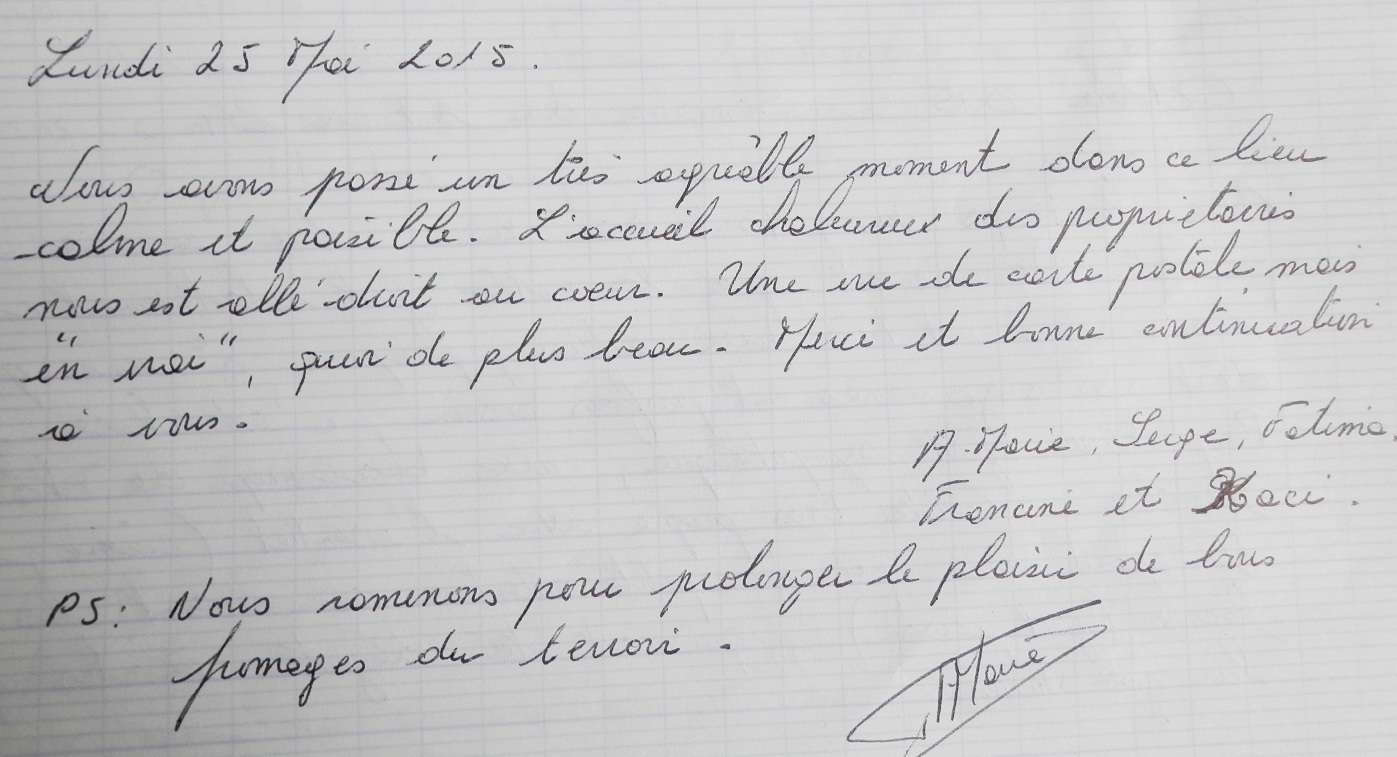 Lundi 25 Mai 2015.
Nous avons passé un très agréable moment dans ce lieu
calme et paisible. L'accueil chaleureux des propriétaires
nous est allé droit au coeur. Une vue de carte postale mais
"en vrai", quoi de plus beau. Merci et bonne continuation
à vous.
A.Marie, Serge, Fatima,
Francine et Kaci.
PS: Nous ramenons pour prolonger le plaisir de bons
fromages du terroir.
AMarie